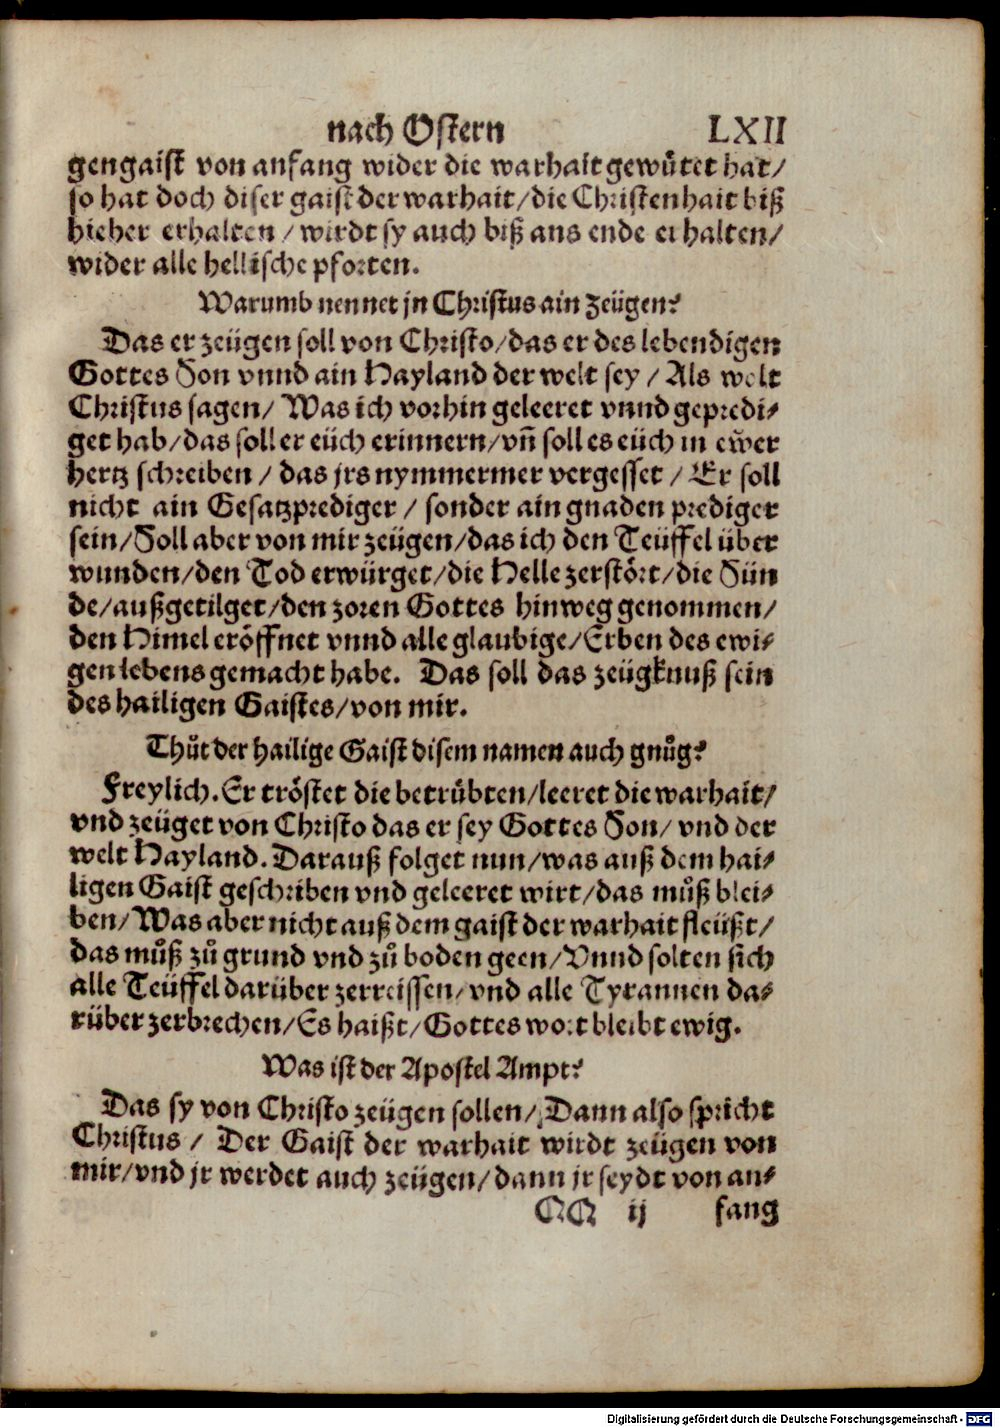 nach Ostern LXII
gengaist von anfang wider die warhait gewuͤtet hat/
so hat doch diser gaist der warhait/die Christenhait biß
hieher erhalten/wirdt sy auch biß ans ende erhalten/
wider alle hellische pforten.
Warumb nennet jn Christus ain Zeügen?
Das er zeügen soll von Christo/das er des lebendigen
Gottes Son vnnd ain Hayland der welt sey/Als wolt
Christus sagen/Was ich vorhin geleeret vnnd gepredi⸗
get hab/das soll er eüch erinnern/vñ soll es eüch in ewer
hertz schreiben/das jrs nymmermer vergesset/Er soll
nicht ain Gesatzprediger/sonder ain gnaden prediger
sein/Soll aber von mir zeügen/das ich den Teüffel über
wunden/den Tod erwürget/die Helle zerstört/die Sün
de/außgetilget/den zoren Gottes hinweg genommen/
den Himel eröffnet vnnd alle glaubige/Erben des ewi⸗
gen lebens gemacht habe. Das soll das zeügknuß sein
des hailigen Gaistes/von mir.
Thuͤt der hailige Gaist disem namen auch gnuͦg?
Freylich. Er tröstet die betruͤbten/leeret die warhait/
vnd zeüget von Christo das er sey Gottes Son/vnd der
welt Hayland. Darauß folget nun/was auß dem hai⸗
ligen Gaist geschriben vnd geleeret wirt/das muͦß blei⸗
ben/Was aber nicht auß dem gaist der warhait fleüßt/
das muͦß zuͦ grund vnd zuͦ boden geen/Vnnd solten sich
alle Teüffel darüber zerreissen/vnd alle Tyrannen da⸗
rüber zerbrechen/Es haißt/Gottes wort bleibt ewig.
Was ist der Apostel Ampt?
Das sy von Christo zeügen sollen/Dann also spricht
Christus/Der Gaist der warhait wirdt zeügen von
mir/vnd jr werdet auch zeügen/dann jr seydt von an⸗
QQ ij fang
Digitalisierung gefördert durch die Deutsche Forschungsgemeinschaft - DFG